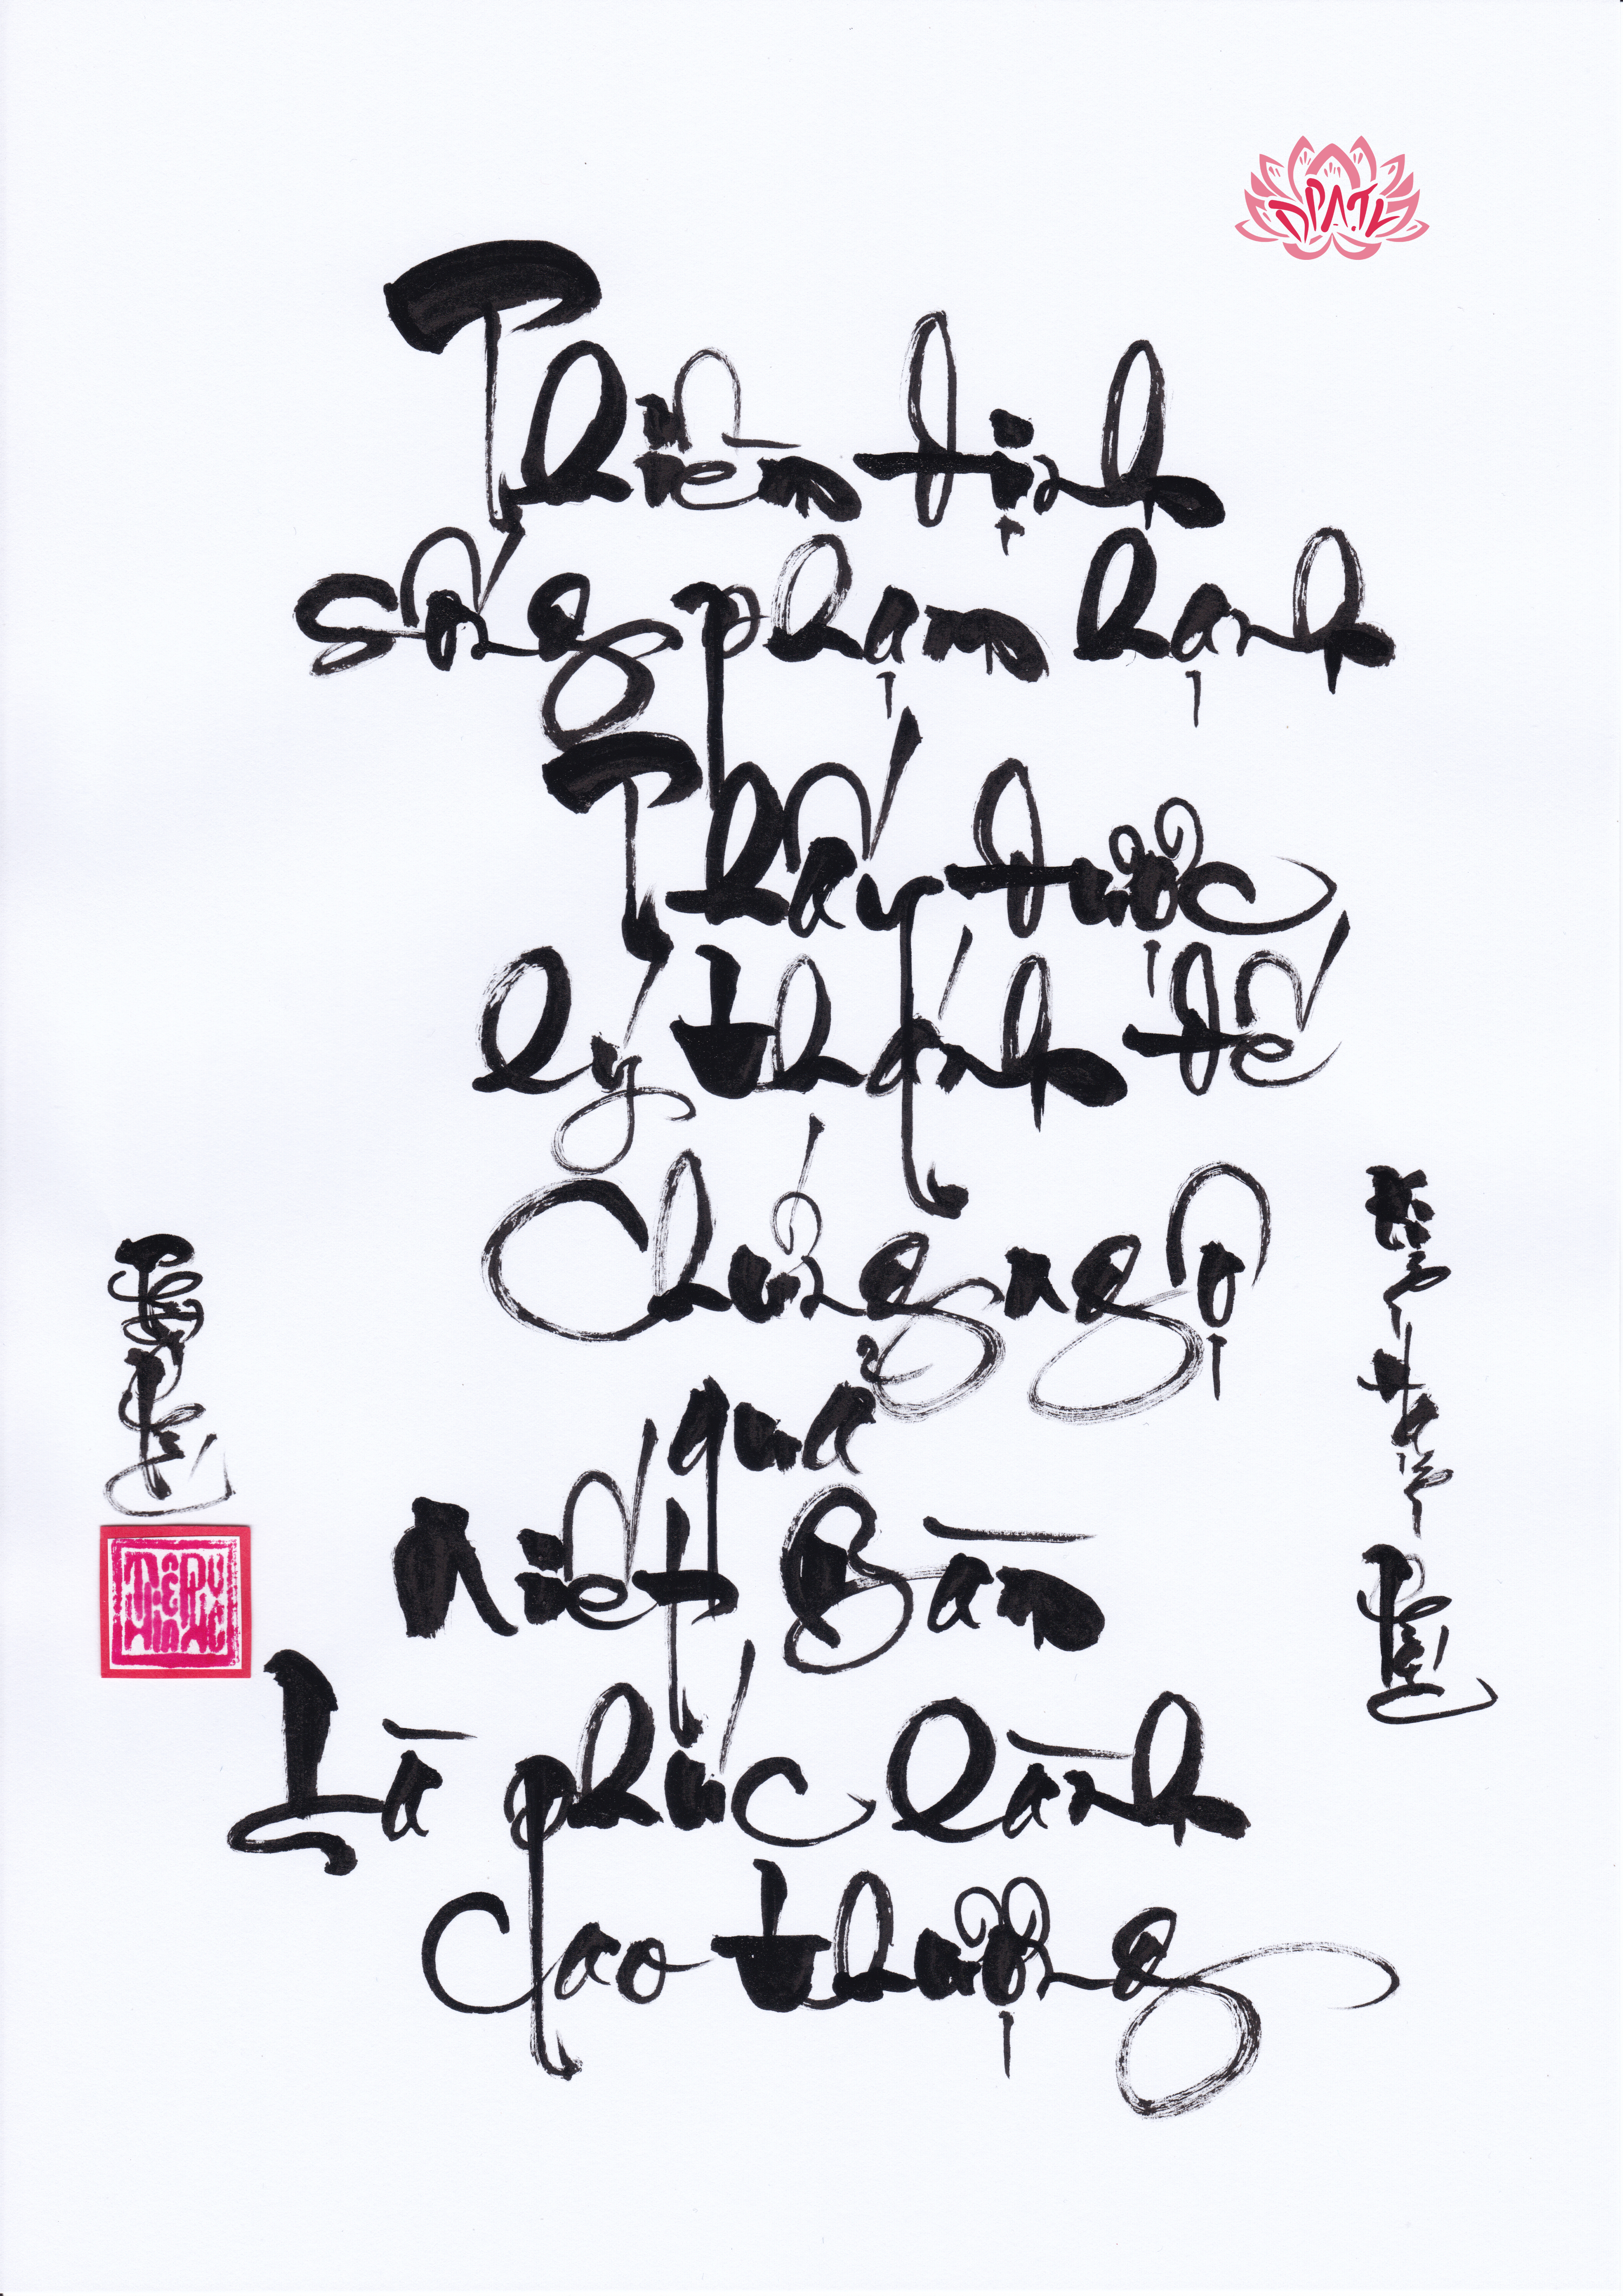 ĐPATK
Thiền định
sống phạm hạnh
Thấy được
lý thánh đế
Chứng ngộ
quả
Niết Bàn
Là phúc lành
cao thượng